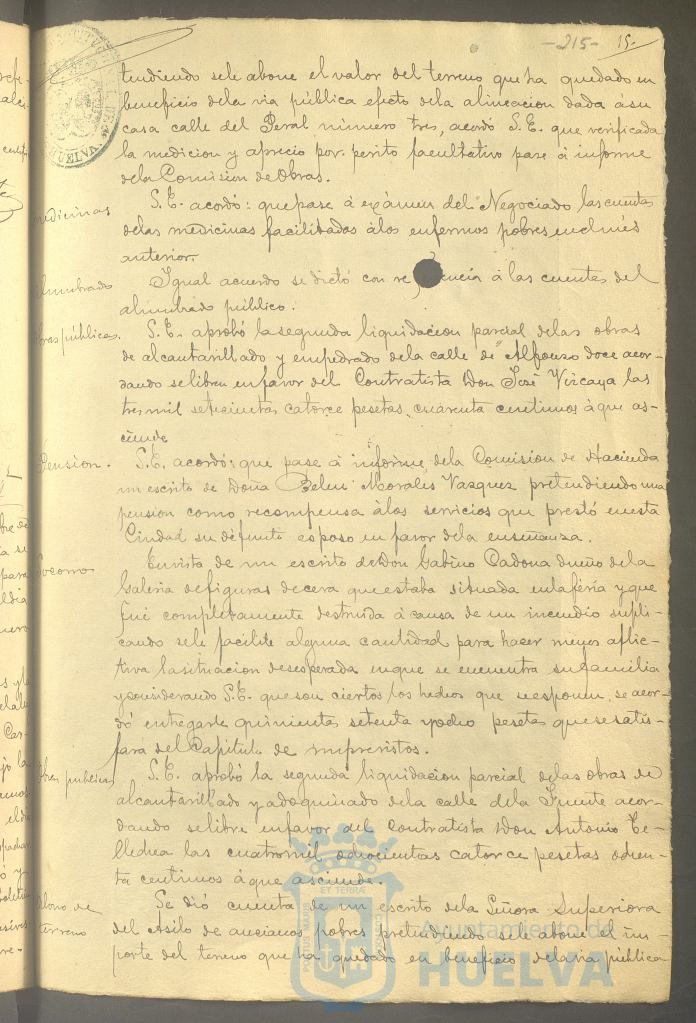 -215- 15-
tendiendo se le abone el valor del terreno que ha quedado en
beneficio dela via pública efecto dela alineacion dada ásu
casa calle del Peral número tres, acordó S.E. que verificada
la medicion y aprecio por perito facultativo pase á informe
dela Comision de Obras.
medicinas
S.E. acordó: que pase á exámen del Negociado las cuentas
delas medicinas facilitadas álos enfermos pobres enel més
anterior.
alumbrado
Igual acuerdo se dictó con re encia á las cuentas del
alumbrado público.
obras públicas.
S.E. aprobó la segunda liquidacion parcial delas obras
de alcantarillado y empedrado dela calle de Alfonso doce acor-
dando se libren en favor del Contratista Don José Vizcaya las
tres mil setecientas catorce pesetas, cuarenta centimos á que as-
ciende
Pension.
S.E. acordó: que pase á informe dela Comision de Hacienda
un escrito de Doña Belen Morales Vazquez pretendiendo una
pension como recompensa álos servicios que prestó en esta
Ciudad su difunto esposo en favor dela enseñanza.
Socorro
En vista de un escrito de Don Gabino dueño dela
Galeria de figuras de cera que estaba situada en la féria y que
fué completamente destruida á causa de un incendio supli-
cando se le facilite alguna cantidad para hacer menos aflic-
tiva la situacion desesperada en que se encuentra su familia
y considerando S.E. que son ciertos los hechos que se esponen, se acor-
dó entregarle quinientas setenta y ocho pesetas que se satis-
fará del Capítulo de imprevistos.
Obras publicas
S.E. aprobó la segunda liquidacion parcial delas obras de
alcantarillado y adoquinado dela calle dela Fuente acor-
dando se libre en favor del Contratista Don Antonio Te-
llechea las cuatro mil ochocientas catorce pesetas ochen-
ta centimos á que asciende.
Abono de
terreno
Se dió cuenta de un escrito dela Señora Superiora
del Asilo de ancianos pobres pretendiendo se le abone el im-
porte del terreno que ha quedado en beneficio dela via pública
HUELVA
Ayuntamiento de
HUELVA